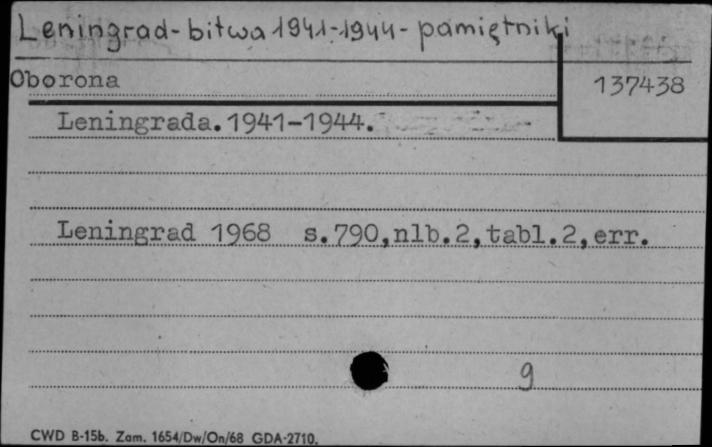 Leningrad-bitwa 1941-1944- pamiętniki
Oborona
137438
Leningrada.1941-1944.
Leningrad 1968 s.790,nlb.2,tabl.2,err.
9
CWD B-15b. Zam. 1654/Dw/On/68 GDA-2710.